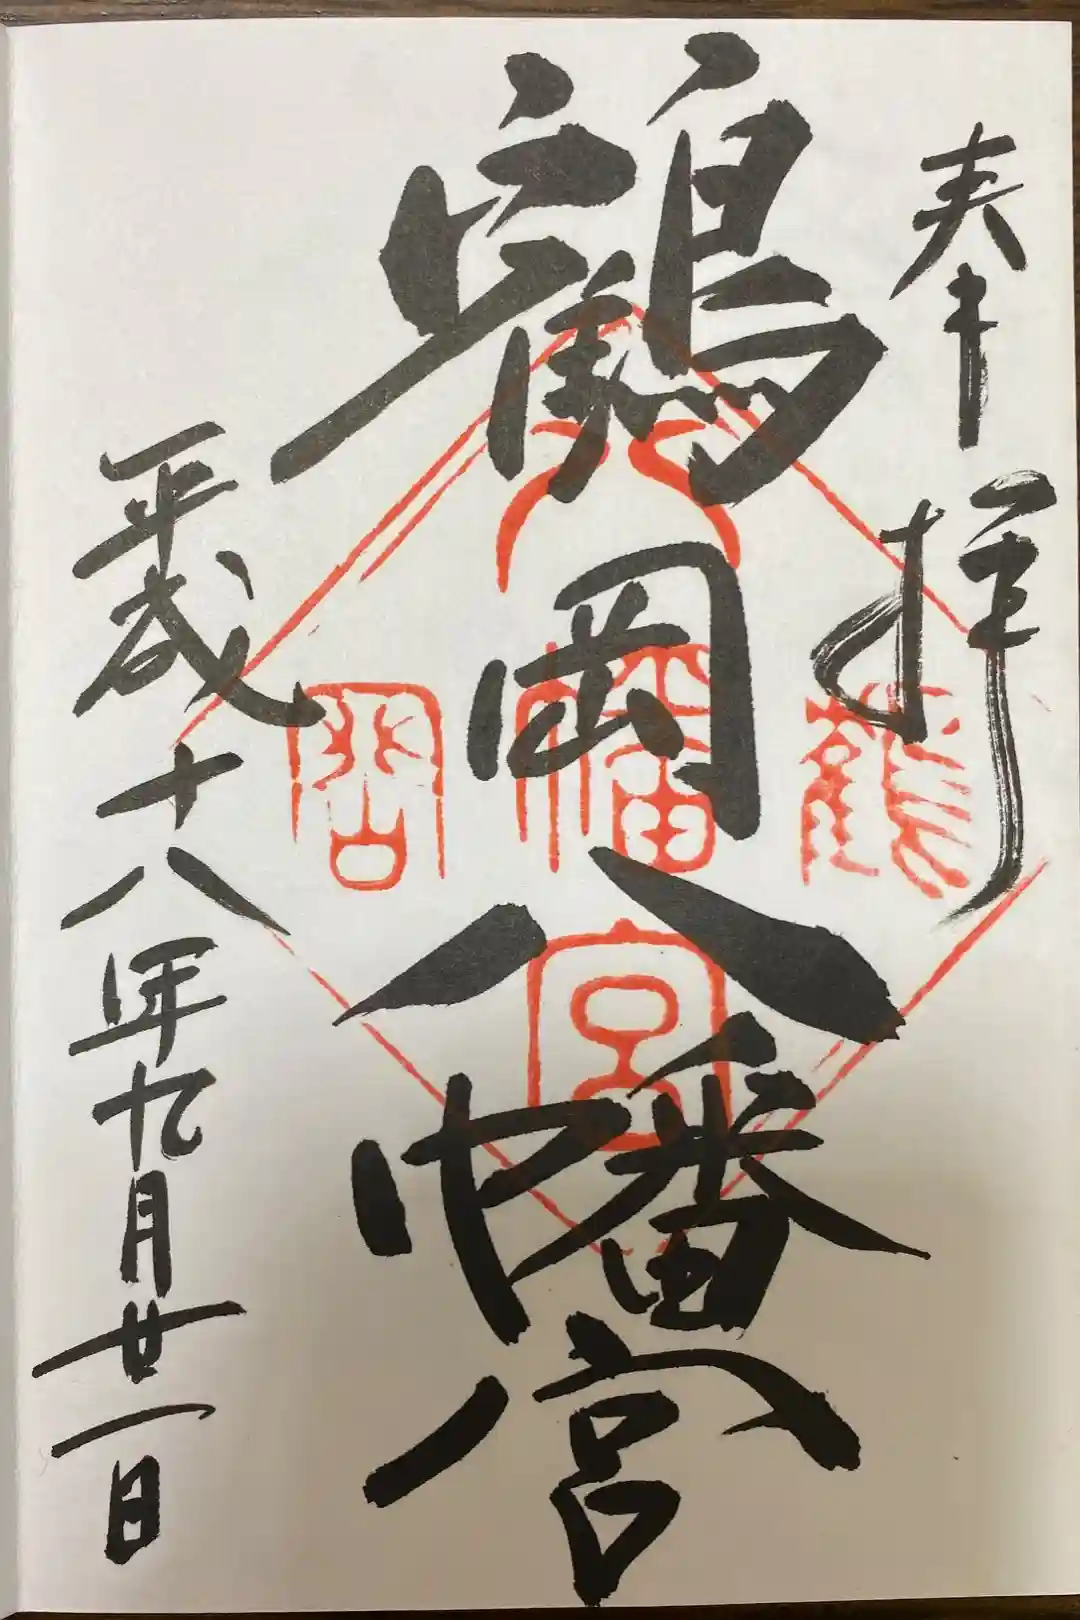 奉拝
鶴岡八幡宮
平成十八年九月廿一日
八
鶴 幡 岡
宮